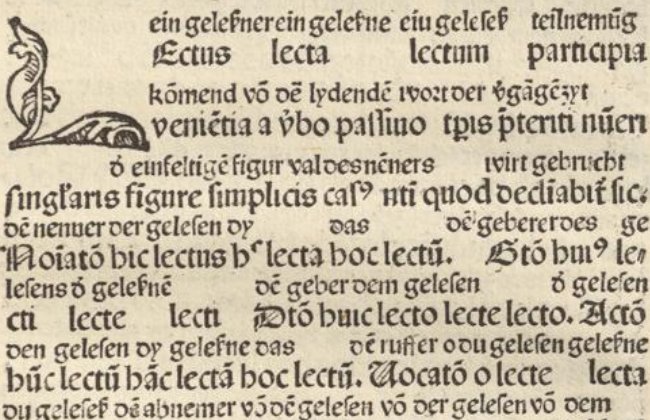 ein geleſner ein geleſne ein geleſeſ teilnemu̅g
LEctus lecta lectum participia
kōmend vō dē lydendē wort der v̓gāgēzyt
veniētia a v̓bo paſſiuo tp̄is p̄teriti nūeri
d̓ einfeltigē figur val des nēners wirt gebrucht
ſingl̓aris figure ſimplicis caſꝰ nti quod declīabit̄ ſic.
dē nenner der geleſen dy das dē geberer des ge
Noīatō hic lectus hˢ lecta hoc lectū. Gtō huiꝰ le⸗
leſens d̓ geleſnē dē geber dem geleſen d̓ geleſen
cti lecte lecti Dtō huic lecto lecte lecto. Actō
den geleſen dy geleſne das dē ruffer o du geleſen geleſne
hūc lectū hāc lectā hoc lectū. Uocatō o lecte lecta
du geleſeſ dē abnemer vō dē geleſen vō der geleſen vō dem